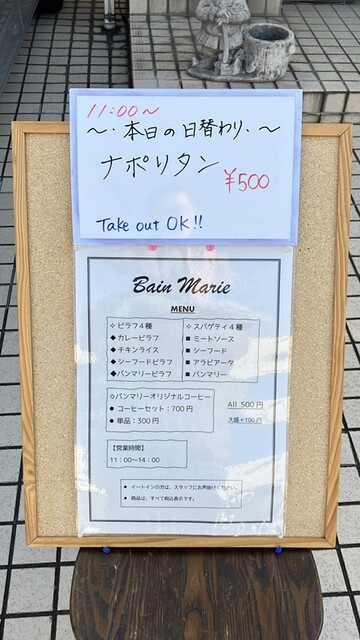 11:00～
～・本日の日替わり・～
ナポリタン
¥500
Take out OK!!
Bain Marie
MENU
✧ピラフ４種
◆カレーピラフ
◆チキンライス
◆シーフードピラフ
◆バンマリーピラフ
✧スパゲティ４種
■ ミートソース
■ シーフード
■ アラビアータ
■ バンマリー
✧バンマリーオリジナルコーヒー
● コーヒーセット：700円
● 単品：300円
All 500円
大盛＋100円
【営業時間】
11：00～14：00
● イートインの方は、スタッフにお声掛けください。
● 商品は、すべて税込表示です。